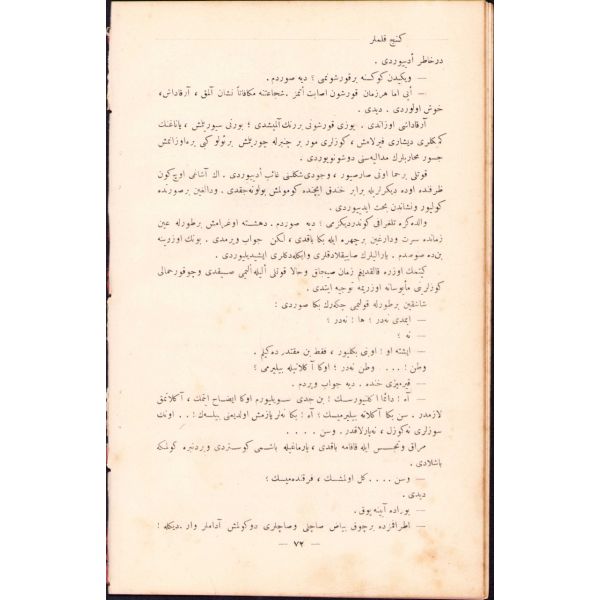 كنج قلملر
در خاطر أدييوردى .
— ويكيدن كوكسنه بر قورشونمى ؟ ديه صوردم .
— أبى اما هرزمان قورشون اصابت أتمز . شجاعتنه مكافاتاً نشان آلمق ، آرقاداش ،
خوش اولوردى . ديدى .
آرقاداشى اوزاندى . يوزى قورشونى بررنك آلمشدى ؛ بورنى سيورلمش ، ياناغنك
كميكلرى ديشارى فيرلامش ، كوزلرى مور بر چنبرله چورلمش
جسور محاربلرك مداليه سنى دوشونويوردى .
قوتلى برحما اونى صارصيور ، وجودى شكلنى غائب أديوردى . اك آشاغى اوچ كون
ظرفنده اوده ديكرلريله برابر خندق ايچنده كومولمش بولونه جقدى . ودالعين برصورتده
كوليور ونشاندن بحث ايديیوردى .
والده كزه تلغرافى كوندرديكزمى ؟ ديه صوردم . دهشته اوغرامش برطورله عين
زمانده سرت ودارغين برچهره ايله بكا باقدى ، لكن جواب ويرمدى . بونك اوزرينه
بن ده صوصدم . يارالیلرك صايیقلادقلرى وايكله دكلرى ايشيديليوردى .
كيتمك اوزره قالقديغم زمان صيجاق وحالا قوتلى أليله ألیمى صيقدى وچوقور حمالى
كوزلرينى مأيوسانه اوزريمه توجيه ايتدى .
شاشقين برطورله قولیمى چكه رك بكا صوردى :
— ايمدى نه در ؛ ها ! نه در ؛
— نه ؛
— ايشته او ! اونى بكليور ، فقط بن مقتدر ده كيلم .
وطن ! . . . . وطن نه در ؛ اوكا آكلاتیله بيليرمى ؟
— قيرمزى خنده . ديه جواب ويردم .
— آه ! دائما اكلنیورسك ! بن جدى سويليورم اوكا ايضاح ايتمك ، آكلاتمق
لازمدر . سن بكا آكلاته بيليرميسك ؛ آه ! بكا نه لر يازمش اولديغنى بيلسه ك ! . . اونك
سوزلرى نه كوزل ، نه يارلاقدر . وسن . . . .
مراق وتجسس ايله قافامه باقدى ، پارماغيله باشمى كوستردى وبردنبره كولمكه
باشلادى .
— وسن . . . . كل اولمشسك ، فرقنده ميسك ؛
ديدى .
— بوراده آيينه يوق .
— اطرافمزده برچوق بياض صاچلى وصاچلرى دوكولمش آداملر وار . ديكله !
— ٧٢ —